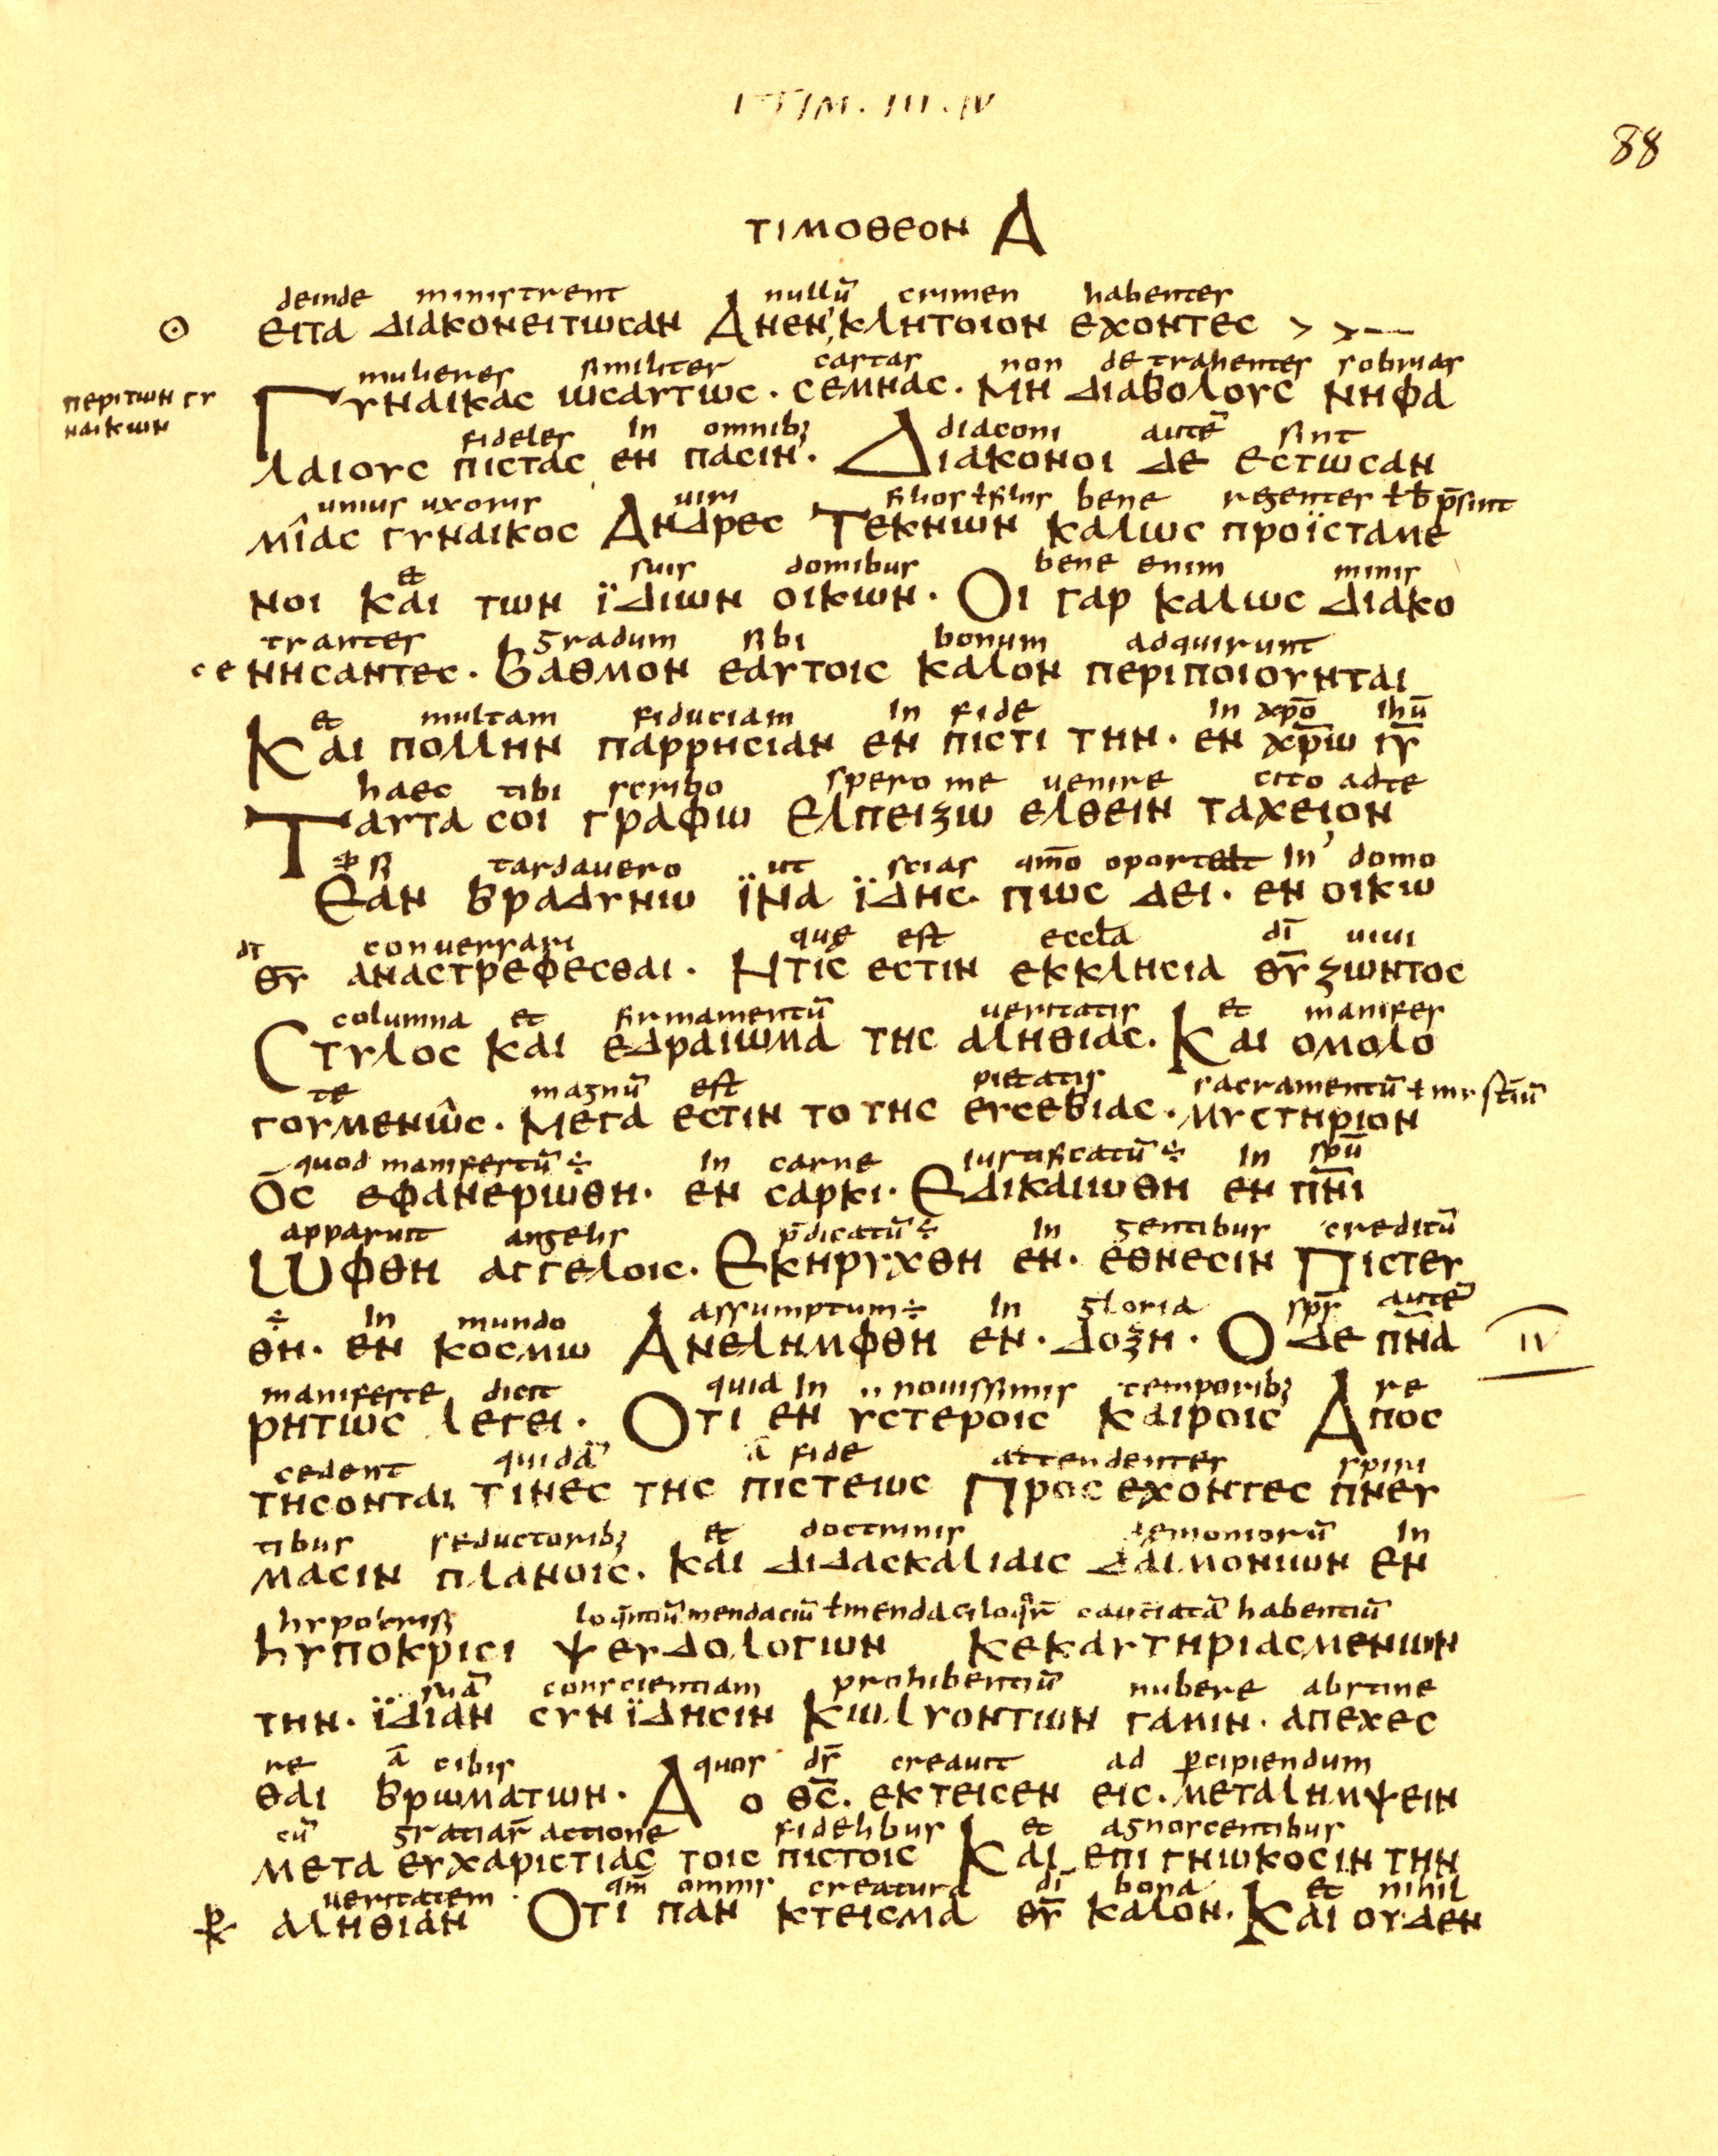 I TIM. III. IV
88
ΤΙΜΟΘΕΟΝ Α
deinde ministrent nullū crimen habentes
ΕΙΤΑ ΔΙΑΚΟΝΕΙΤΩCΑΝ ΑΝΕΝ'ΚΛΗΤΟΙΟΝ ΕΧΟΝΤΕC > >—
mulieres similiter castas non detrahentes sobrias
ΠΕΡΙΤΩΝ ΓΥ
ΝΑΙΚΩΝ
ΓΥΝΑΙΚΑC ΩCΑΥΤΩC · CΕΜΝΑC · ΜΗ ΔΙΑΒΟΛΟΥC ΝΗΦΑ
fideles in omnibꝫ diaconi autē sint
ΛΑΙΟΥC ΠΙCΤΑC ΕΝ ΠΑCΙΝ · ΔΙΑΚΟΝΟΙ ΔΕ ΕCΤΩCΑΝ
unius uxoris uiri filios ł filiis bene regentes ł b̄ p̄sint
ΜΙΑC ΓΥΝΑΙΚΟC ΑΝΔΡΕC ΤΕΚΝΩΝ ΚΑΛΩC ΠΡΟΪCΤΑΜΕ
et suis domibus bene enim minis
ΝΟΙ ΚΑΙ ΤΩΝ ΪΔΙΩΝ ΟΙΚΩΝ · ΟΙ ΓΑΡ ΚΑΛΩC ΔΙΑΚΟ
trantes gradum sibi bonum adquirunt
CΕ ΝΗCΑΝΤΕC · ΒΑΘΜΟΝ ΕΑΥΤΟΙC ΚΑΛΟΝ ΠΕΡΙΠΟΙΟΥΝΤΑΙ
et multam fiduciam in fide in xp̄o ihū
ΚΑΙ ΠΟΛΛΗΝ ΠΑΡΡΗCΙΑΝ ΕΝ ΠΙCΤΙ ΤΗΝ · ΕΝ Χ̄Ρ̄Ω Ι̅Υ̅
haec tibi scribo spero me uenire cito ad te
ΤΑΥΤΑ CΟΙ ΓΡΑΦΩ ΕΛΠΕΙΖΩ ΕΛΘΕΙΝ ΤΑΧΕΙΟΝ
si tardauero ut scias qm̄o oportet in domo
ΕΑΝ ΒΡΑΔΥΝΩ ΪΝΑ ΪΔΗC · ΠΩC ΔΕΙ · ΕΝ ΟΙΚΩ
dī conuersari que est eccła dī uiui
Θ̅Υ̅ ΑΝΑCΤΡΕΦΕCΘΑΙ · ΗΤΙC ΕCΤΙΝ ΕΚΚΛΗCΙΑ Θ̅Υ̅ ΖΩΝΤΟC
columna et firmamentū ueritatis et manifes
CΤΥΛΟC ΚΑΙ ΕΔΡΑΙΩΜΑ ΤΗC ΑΛΗΘΙΑC · ΚΑΙ ΟΜΟΛΟ
te magnū est pietatis sacramentū ł mysteriū
ΓΟΥΜΕΝΩC · ΜΕΓΑ ΕCΤΙΝ ΤΟ ΤΗC ΕΥCΕΒΙΑC · ΜΥCΤΗΡΙΟΝ
quod manifestū ÷ in carne iustificatū ÷ in spū
Ο̅C ΕΦΑΝΕΡΩΘΗ · ΕΝ CΑΡΚΙ · ΕΔΙΚΑΙΩΘΗ ΕΝ Π̅Ν̅Ι
apparuit angelis p̄dicatū ÷ in gentibus creditū
ΩΦΘΗ ΑΓΓΕΛΟΙC · ΕΚΗΡΥΧΘΗ ΕΝ · ΕΘΝΕCΙΝ ΠΙCΤΕΥ
÷ in mundo assumptum ÷ in gloria sp̄s autē
ΘΗ · ΕΝ ΚΟCΜΩ ΑΝΕΛΗΜΦΘΗ ΕΝ · ΔΟΞΗ · Ο ΔΕ Π̅Ν̅Α IV
manifeste dicit quia in nouissimis temporibꝫ re
ΡΗΤΩC ΛΕΓΕΙ · ΟΤΙ ΕΝ ΥCΤΕΡΟΙC ΚΑΙΡΟΙC ΑΠΟC
cedent quidā ā fide attendentes spiri
ΤΗCΟΝΤΑΙ ΤΙΝΕC ΤΗC ΠΙCΤΕΩC ΠΡΟCΕΧΟΝΤΕC ΠΝΕΥ
tibus seductoribꝫ et doctrinis demoniorū in
ΜΑCΙΝ ΠΛΑΝΟΙC · ΚΑΙ ΔΙΔΑCΚΑΛΙΑΙC ΔΑΙΜΟΝΙΩΝ ΕΝ
hypocrisi loq̄ntiū mendaciū ł mendaciloqr̄ cauteriatā habentiū
hΥΠΟΚΡΙCΙ ΨΕΥΔΟΛΟΓΩΝ ΚΕΚΑΥΤΗΡΙΑCΜΕΝΩΝ
suā conscientiam prohibentiū nubere abstine
ΤΗΝ · ΪΔΙΑΝ CΥΝΪΔΗCΙΝ ΚΩΛΥΟΝΤΩΝ ΓΑΜΙΝ · ΑΠΕΧΕC
re ā cibis quos d̄s creauit ad p̄cipiendum
ΘΑΙ ΒΡΩΜΑΤΩΝ · Α Ο Θ̅C̅ · ΕΚΤΕΙCΕΝ ΕΙC · ΜΕΤΑΛΗΜΨΕΙΝ
cū gratiar̄ actione fidelibus et agnoscentibus
ΜΕΤΑ ΕΥΧΑΡΙCΤΙΑC ΤΟΙC ΠΙCΤΟΙC ΚΑΙ ΕΠΙΓΝΩΚΟCΙΝ ΤΗΝ
ueritatem qm̄ omnis creatura dī bona et nihil
ΑΛΗΘΙΑΝ ΟΤΙ ΠΑΝ ΚΤΕΙCΜΑ Θ̅Υ̅ ΚΑΛΟΝ · ΚΑΙ ΟΥΔΕΝ